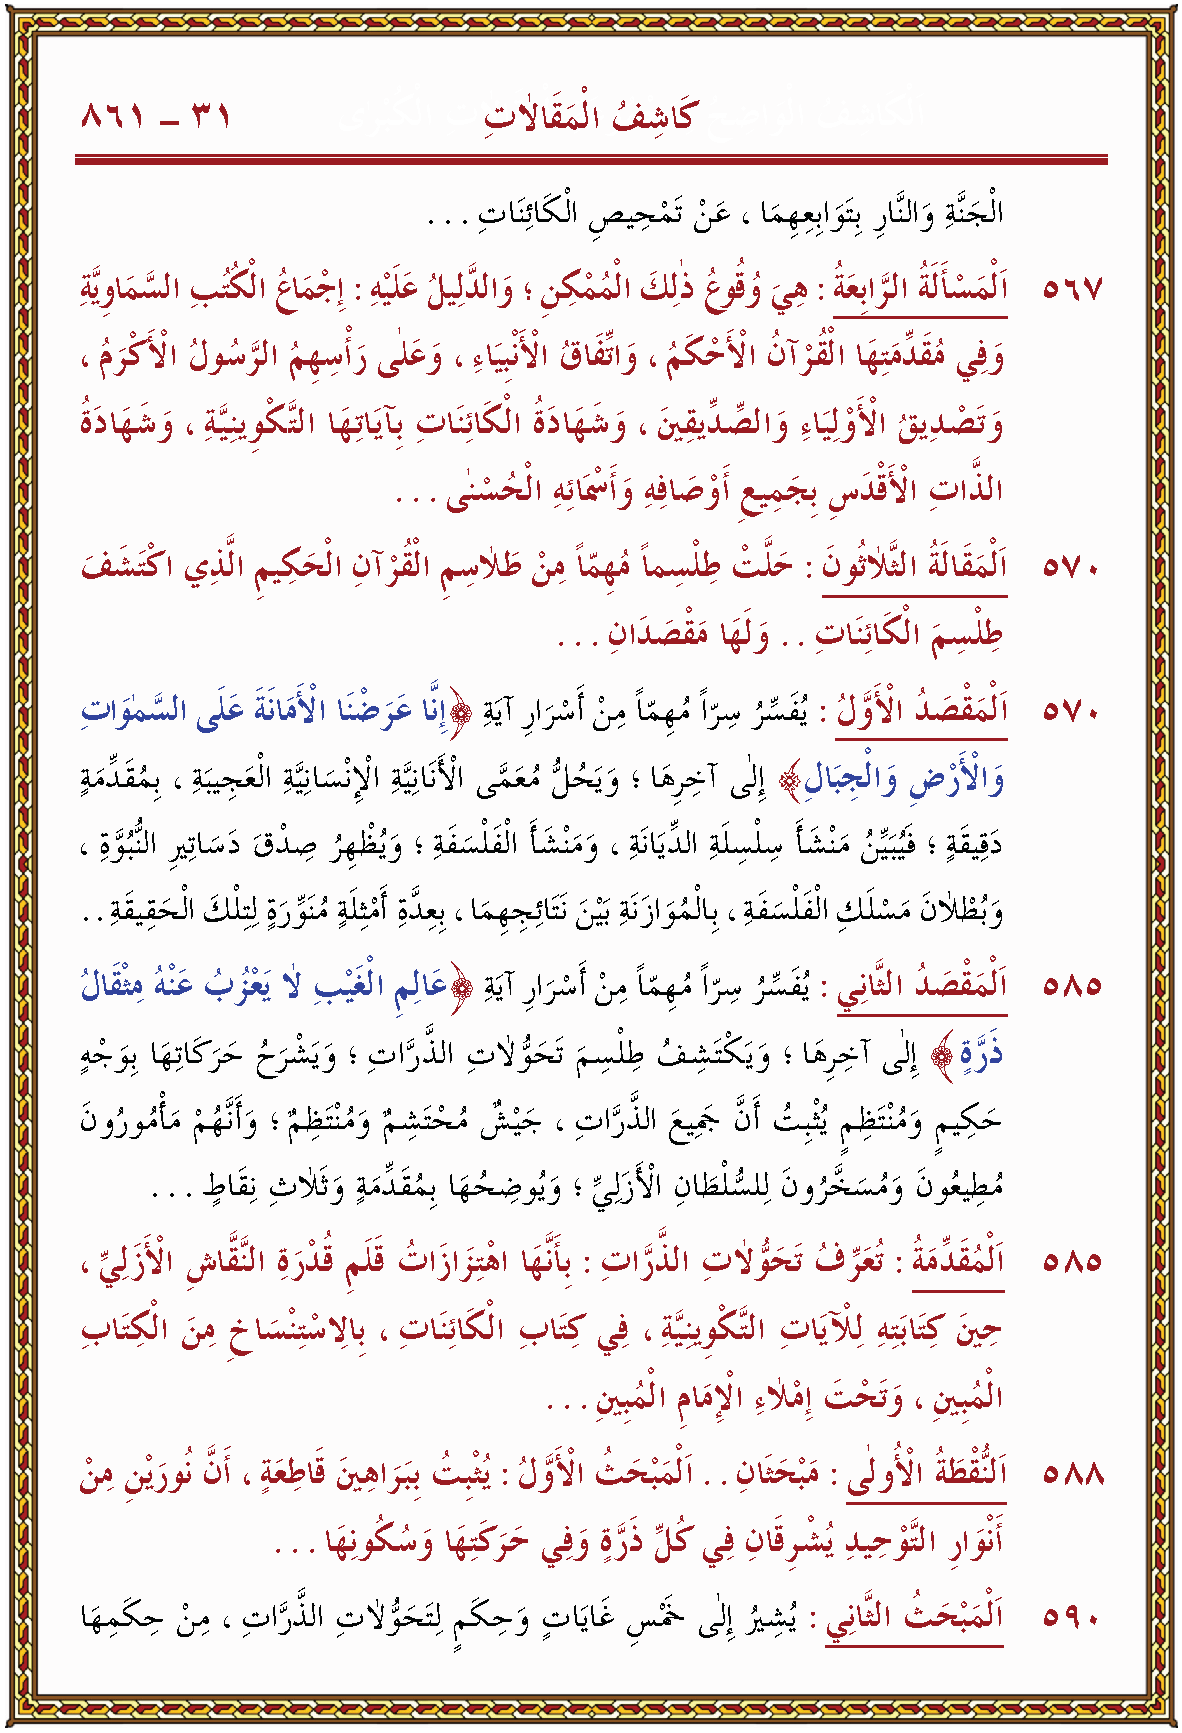 كَاشِفُ الْمَقَالاٰتِ ٣١ – ٨٦١
الْجَنَّةِ وَالنَّارِ بِتَوَابِعِهِمَا ، عَنْ تَمْحِيصِ الْكَائِنَاتِ . . .
٥٦٧ اَلْمَسْأَلَةُ الرَّابِعَةُ : هِيَ وُقُوعُ ذٰلِكَ الْمُمْكِنِ ؛ وَالدَّلِيلُ عَلَيْهِ : إِجْمَاعُ الْكُتُبِ السَّمَاوِيَّةِ
وَفِي مُقَدِّمَتِهَا الْقُرْآنُ الْأَحْكَمُ ، وَاتِّفَاقُ الْأَنْبِيَاءِ ، وَعَلٰى رَأْسِهِمُ الرَّسُولُ الْأَكْرَمُ ،
وَتَصْدِيقُ الْأَوْلِيَاءِ وَالصِّدِّيقِينَ ، وَشَهَادَةُ الْكَائِنَاتِ بِآيَاتِهَا التَّكْوِينِيَّةِ ، وَشَهَادَةُ
الذَّاتِ الْأَقْدَسِ بِجَمِيعِ أَوْصَافِهِ وَأَسْمَائِهِ الْحُسْنٰى . . .
٥٧٠ اَلْمَقَالَةُ الثَّلاٰثُونَ : حَلَّتْ طِلْسِماً مُهِمّاً مِنْ طَلاٰسِمِ الْقُرْآنِ الْحَكِيمِ الَّذِي اكْتَشَفَ
طِلْسِمَ الْكَائِنَاتِ . . وَلَهَا مَقْصَدَانِ . . .
٥٧٠ اَلْمَقْصَدُ الْأَوَّلُ : يُفَسِّرُ سِرّاً مُهِمّاً مِنْ أَسْرَارِ آيَةِ ﴿إِنَّا عَرَضْنَا الْأَمَانَةَ عَلَى السَّمٰوَاتِ
وَالْأَرْضِ وَالْجِبَالِ﴾ إِلٰى آخِرِهَا ؛ وَيَحُلُّ مُعَمَّى الْأَنَانِيَّةِ الْإِنْسَانِيَّةِ الْعَجِيبَةِ ، بِمُقَدِّمَةٍ
دَقِيقَةٍ ؛ فَيُبَيِّنُ مَنْشَأَ سِلْسِلَةِ الدِّيَانَةِ ، وَمَنْشَأَ الْفَلْسَفَةِ ؛ وَيُظْهِرُ صِدْقَ دَسَاتِيرِ النُّبُوَّةِ ،
وَبُطْلاٰنَ مَسْلَكِ الْفَلْسَفَةِ ، بِالْمُوَازَنَةِ بَيْنَ نَتَائِجِهِمَا ، بِعِدَّةِ أَمْثِلَةٍ مُنَوِّرَةٍ لِتِلْكَ الْحَقِيقَةِ . .
٥٨٥ اَلْمَقْصَدُ الثَّانِي : يُفَسِّرُ سِرّاً مُهِمّاً مِنْ أَسْرَارِ آيَةِ ﴿عَالِمِ الْغَيْبِ لاٰ يَعْزُبُ عَنْهُ مِثْقَالُ
ذَرَّةٍ﴾ إِلٰى آخِرِهَا ؛ وَيَكْتَشِفُ طِلْسِمَ تَحَوُّلاٰتِ الذَّرَّاتِ ؛ وَيَشْرَحُ حَرَكَاتِهَا بِوَجْهٍ
حَكِيمٍ وَمُنْتَظِمٍ يُثْبِتُ أَنَّ جَمِيعَ الذَّرَّاتِ ، جَيْشٌ مُحْتَشِمٌ وَمُنْتَظِمٌ ؛ وَأَنَّهُمْ مَأْمُورُونَ
مُطِيعُونَ وَمُسَخَّرُونَ لِلسُّلْطَانِ الْأَزَلِيِّ ؛ وَيُوضِحُهَا بِمُقَدِّمَةٍ وَثَلاٰثِ نِقَاطٍ . . .
٥٨٥ اَلْمُقَدِّمَةُ : تُعَرِّفُ تَحَوُّلاٰتِ الذَّرَّاتِ : بِأَنَّهَا اهْتِزَازَاتُ قَلَمِ قُدْرَةِ النَّقَّاشِ الْأَزَلِيِّ ،
حِينَ كِتَابَتِهِ لِلْآيَاتِ التَّكْوِينِيَّةِ ، فِي كِتَابِ الْكَائِنَاتِ ، بِالاِسْتِنْسَاخِ مِنَ الْكِتَابِ
الْمُبِينِ ، وَتَحْتَ إِمْلاٰءِ الْإِمَامِ الْمُبِينِ . . .
٥٨٨ اَلنُّقْطَةُ الْأُولٰى : مَبْحَثَانِ . . اَلْمَبْحَثُ الْأَوَّلُ : يُثْبِتُ بِبَرَاهِينَ قَاطِعَةٍ ، أَنَّ نُورَيْنِ مِنْ
أَنْوَارِ التَّوْحِيدِ يُشْرِقَانِ فِي كُلِّ ذَرَّةٍ وَفِي حَرَكَتِهَا وَسُكُونِهَا . . .
٥٩٠ اَلْمَبْحَثُ الثَّانِي : يُشِيرُ إِلٰى خَمْسِ غَايَاتٍ وَحِكَمٍ لِتَحَوُّلاٰتِ الذَّرَّاتِ ، مِنْ حِكَمِهَا